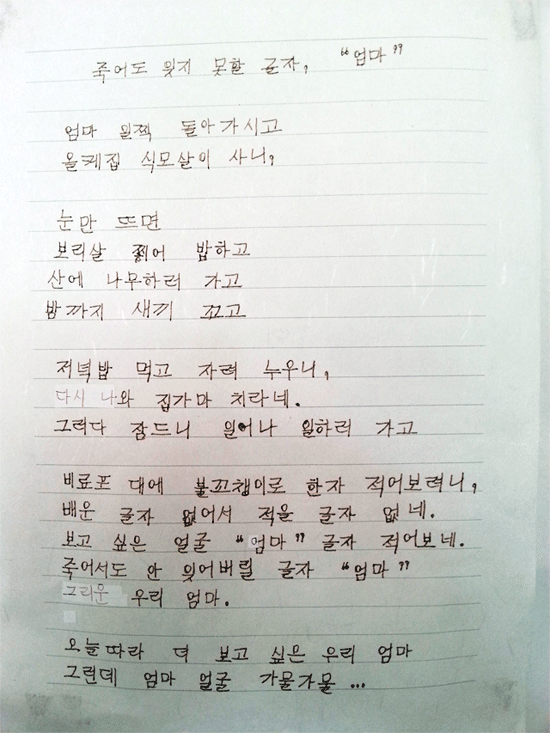 죽어도 잊지 못할 글자, “엄마”
엄마 일찍 돌아가시고
올케집 식모살이 사니,
눈만 뜨면
보리살 찧어 밥하고
산에 나무하러 가고
밤까지 새끼 꼬고
저녁밥 먹고 자려 누우니,
다시 나와 집가마 치라네.
그러다 잠드니 일어나 일하러 가고
비료포 대에 불꼬챙이로 한자 적어보려니,
배운 글자 없어서 적을 글자 없네.
보고 싶은 얼굴 “엄마” 글자 적어보네.
죽어서도 안 잊어버릴 글자 “엄마”
그리운 우리 엄마.
오늘따라 더 보고 싶은 우리 엄마
그런데 엄마 얼굴 가물가물...